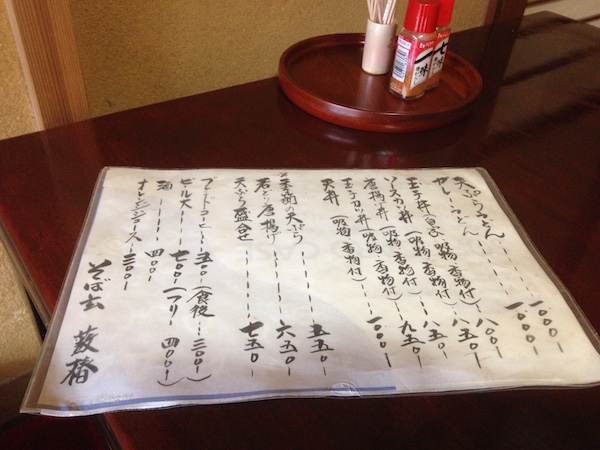 天ぷらうどん ------ 一〇〇〇-
カレーうどん ------ 一〇〇〇-
玉子丼 (吸物 香物付) -- 八〇〇-
(吸物 香物付) -- 八五〇-
ソースカツ丼 (吸物 香物付) -- 八五〇-
唐揚げ丼 (吸物 香物付) -- 九五〇-
玉子カツ丼 (吸物 香物付) --
天丼 (吸物 香物付) -- 一〇〇〇-
季節の天ぷら ------ 五五〇-
若どり唐揚げ ------ 六五〇-
天ぷら盛合せ ------ 七五〇-
ブレンドコーヒー --- 五〇〇- (食後 -- 三〇〇-)
ビール大 --- 七〇〇- (フリー 四〇〇-)
酒 ------ 四〇〇-
オレンジジュース -- 三〇〇-
そば玄 薮椿
一味
七味